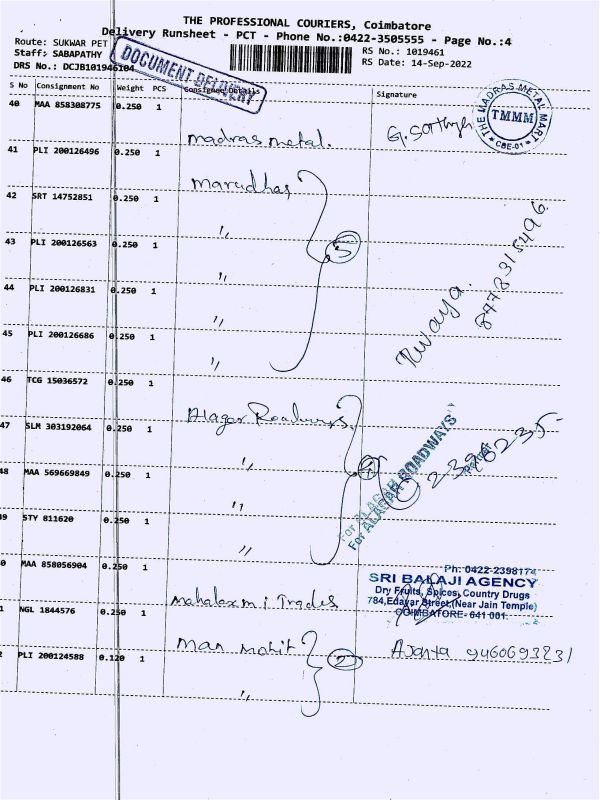 THE PROFESSIONAL COURIERS, Coimbatore
Delivery Runsheet - PCT - Phone No.:0422-3505555 - Page No.:4
Route: SUKWAR PET
RS No.: 1019461
Staff: SABAPATHY
RS Date: 14-Sep-2022
DRS No.: DCJB101946104
DOCUMENT DELIVERY
S No Consignment No Weight PCS Consignee Details Signature
40 MAA 858308775 0.250 1 madras metal.
THE MADRAS METAL MART
TMMM
CBE-01
41 PLI 200126496 0.250 1 Marudhar
42 SRT 14752851 0.250 1 ,,
5
43 PLI 200126563 0.250 1 ,,
8978315496
44 PLI 200126831 0.250 1 ,,
45 PLI 200126686 0.250 1 ,,
46 TCG 15036572 0.250 1 Alagar Roadways
47 SLM 303192064 0.250 1 ,,
For ALAGAR ROADWAYS
For ALAGAR ROADWAYS
48 MAA 569669849 0.250 1 ,,
9 STY 811620 0.250 1 ,,
0 MAA 858056904 0.250 1 mahalaxmi Trades
Ph: 0422-2398174
SRI BALAJI AGENCY
Dry Fruits, Spices, Country Drugs
784, Edayar Street, (Near Jain Temple)
COIMBATORE- 641 001.
1 NGL 1844576 0.250 1 Man mohit
2
2 PLI 200124588 0.120 1 ,,